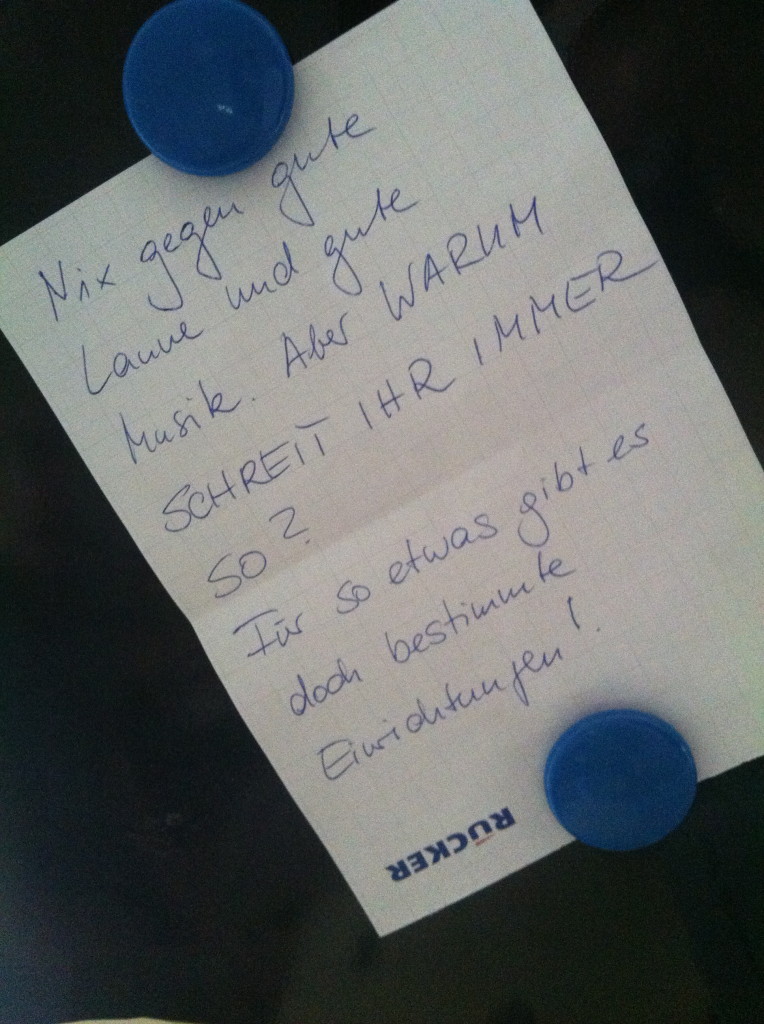 Nix gegen gute
Laune und gute
Musik. Aber WARUM
SCHREIT IHR IMMER
SO?
Für so etwas gibt es
doch bestimmte
Einrichtungen!
RÜCKER